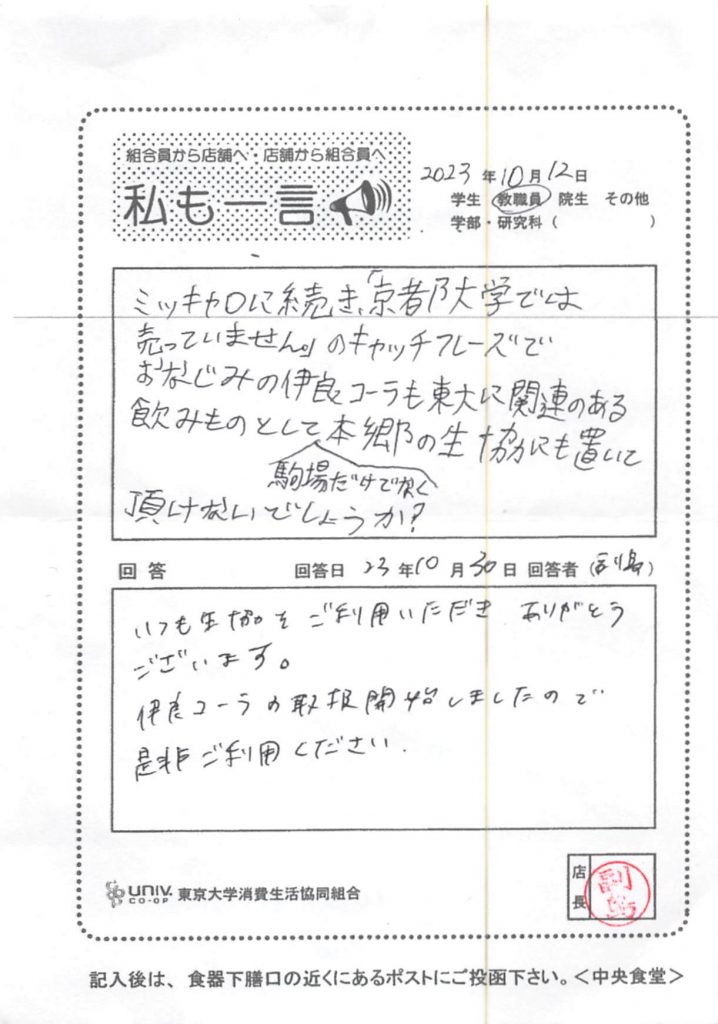 組合員から店舗へ・店舗から組合員へ
私も一言
2023年10月12日
学生 教職員 院生 その他
学部・研究科（ ）
ミッキャロに続き、「京都大学では
売っていません。」のキャッチフレーズで
おなじみの伊良コーラも東大に関連のある
飲みものとして本郷の生協にも置いて
駒場だけでなく
頂けないでしょうか?
回答 回答日 23年10月30日 回答者（副島）
いつも生協をご利用いただき ありがとう
ございます。
伊良コーラの取扱開始しましたので
是非ご利用ください.
UNIV. CO-OP 東京大学消費生活協同組合
店長 副島
記入後は、食器下膳口の近くにあるポストにご投函下さい。＜中央食堂＞